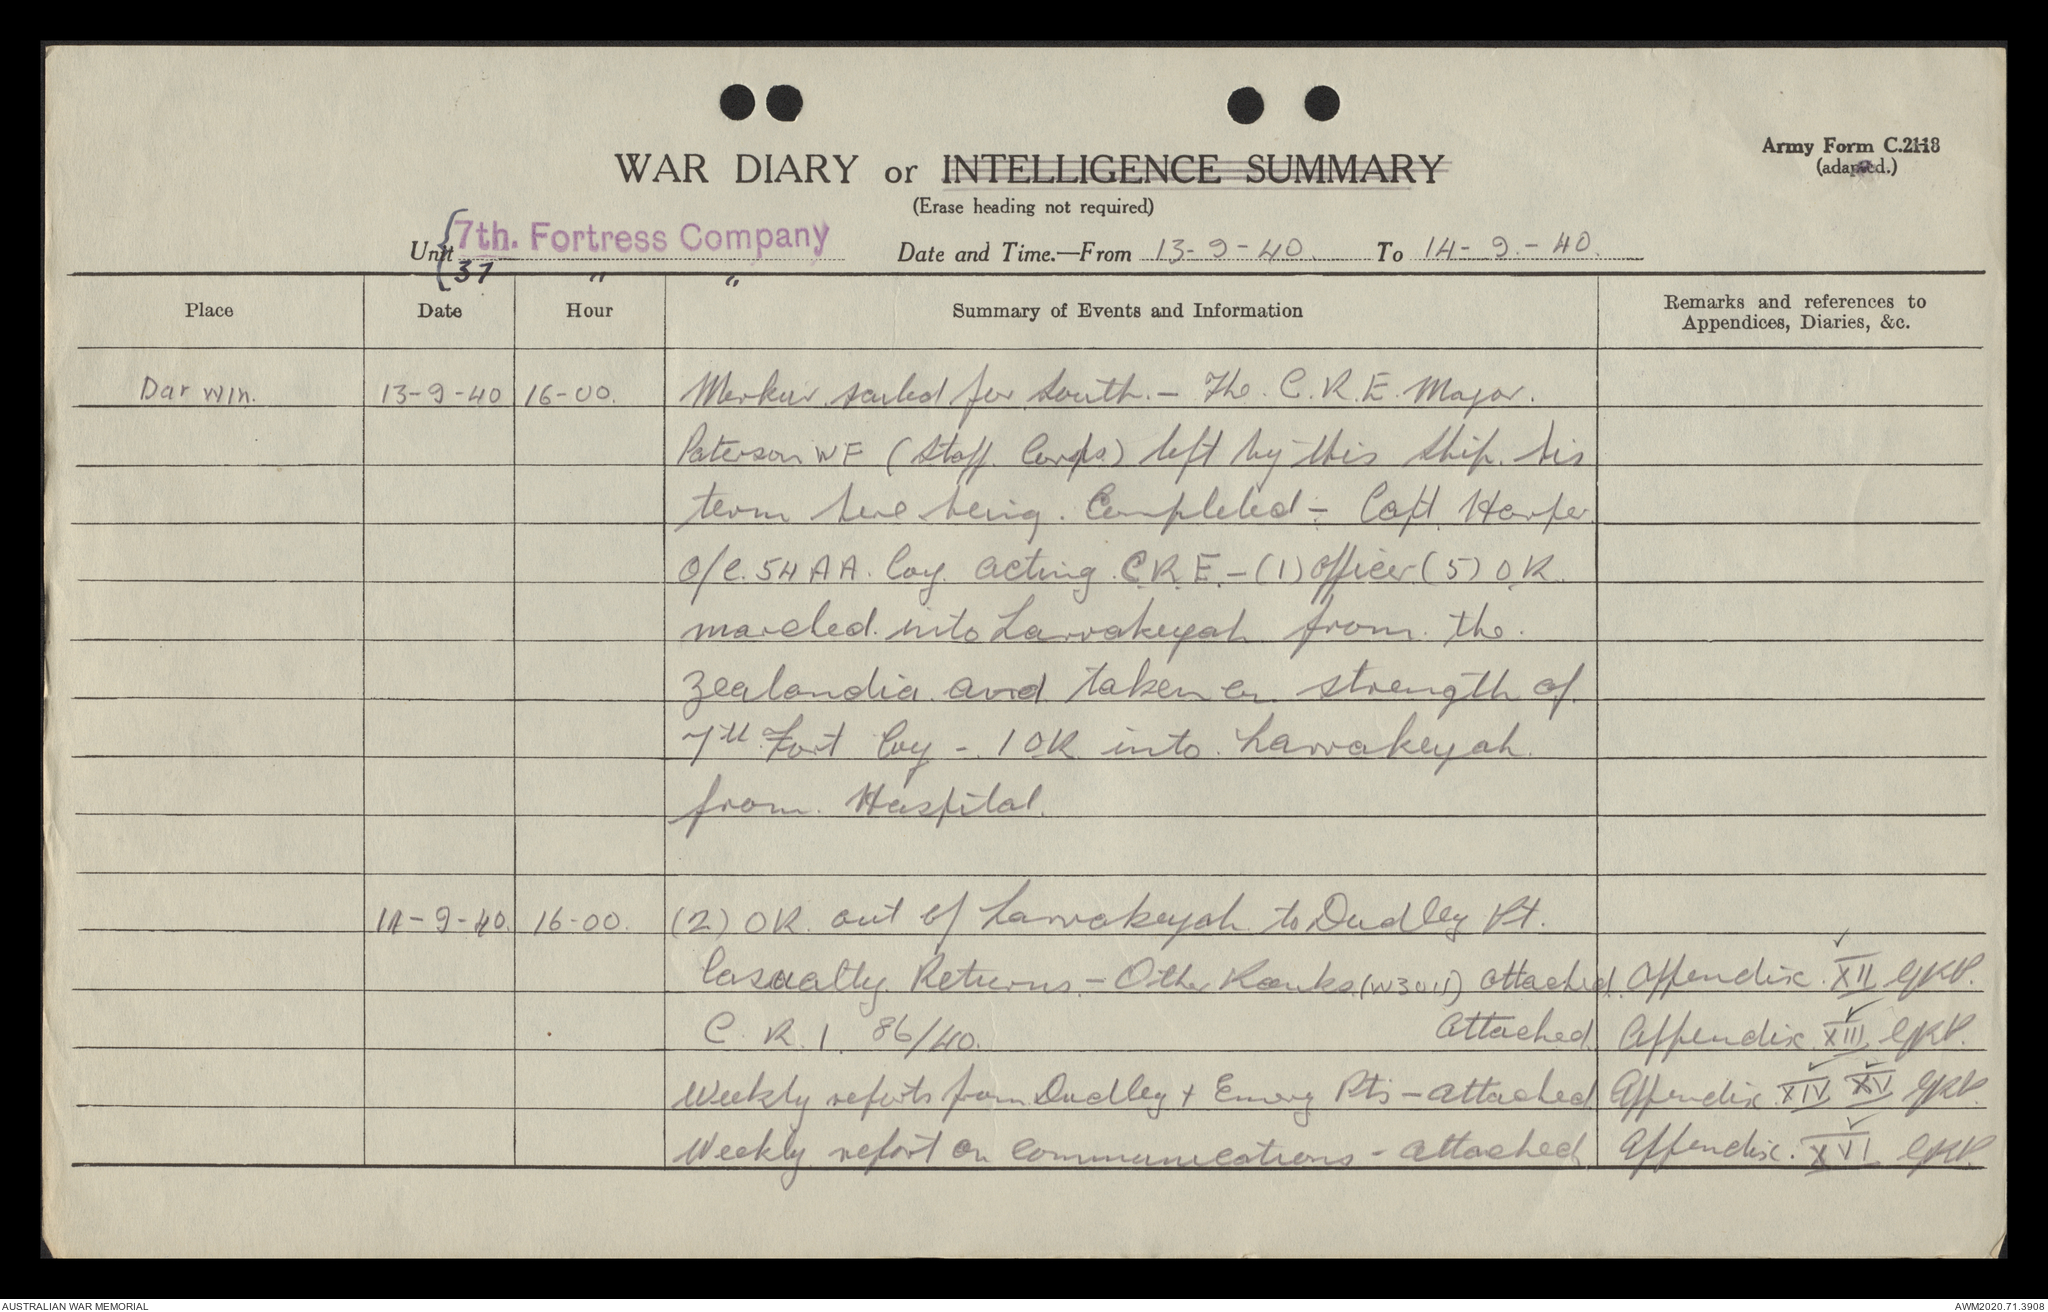 Army Form C.2118
(adapted.)
WAR DIARY or INTELLIGENCE SUMMARY
(Erase heading not required)
Unit 7th. Fortress Company Date and Time.—From 13-9-40. To 14-9.-40.
37 " "
Place Date Hour Summary of Events and Information Remarks and references to Appendices, Diaries, &c.
Darwin. 13-9-40 16-00. Merkur sailed for South. - The C.R.E. Major.
Paterson WF (Staff Corps) left by this ship. his
term here being. Completed - Capt. Harper
O/C. 54 A A. Coy. acting. C.R.E. - (1) officer (5) O.R.
marched. into Larrakeyah from. the.
Zealandia. and taken on strength of.
7th. Fort Coy - 1 OR into. Larrakeyah.
from. Hospital.
14-9-40. 16-00. (2) OR. out of Larrakeyah to Dudley Pt.
Casualty Returns. - Other Ranks. attached. Appendix. XII
C. R. 1. 86/40. attached. Appendix. XIII
Weekly reports from Dudley + Emery Pts - attached Appendix. XIV XV
Weekly report on communications - attached Appendix. XVI
AUSTRALIAN WAR MEMORIAL AWM2020.71.3908